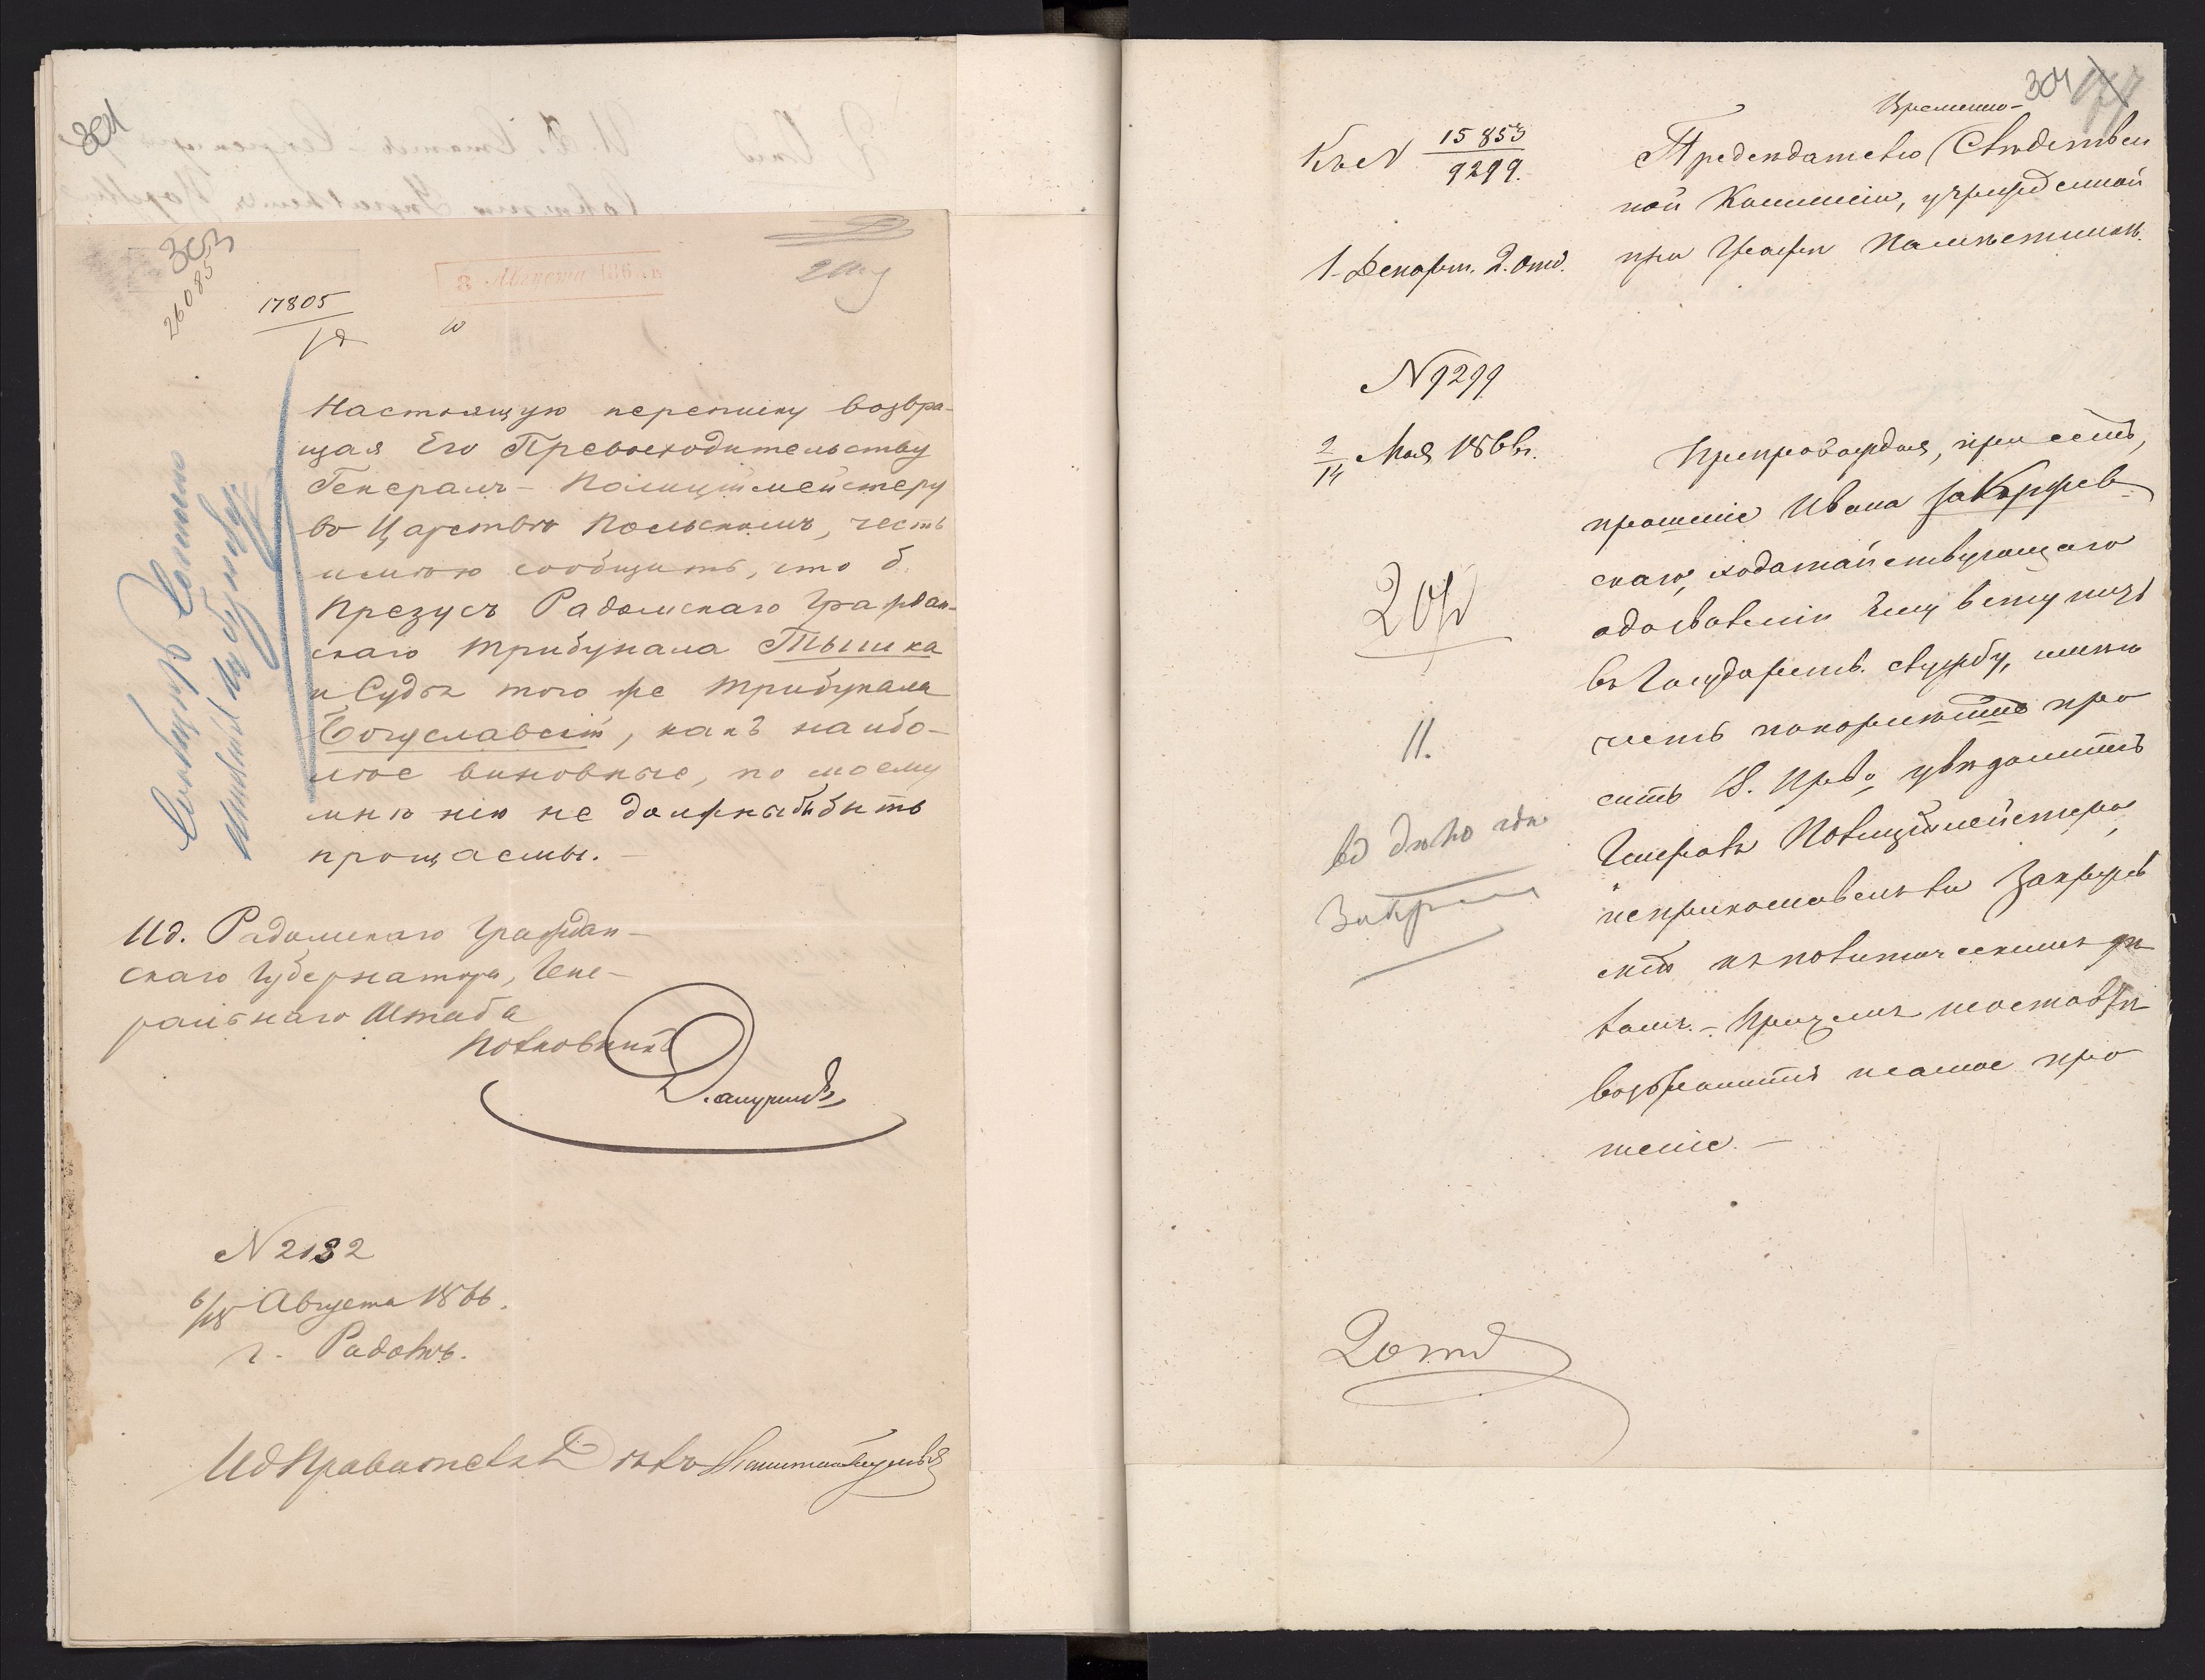 301
303
26085
17805
8 Августа 186
2 отд
Настоящую переписку возвра-
щая Его Превосходительству
Генералъ-Полицiймейстеру
въ Царствѣ Польскомъ, честь
имѣю сообщить, что б.
Презусъ Радомскаго Граждан-
скаго Трибунала Тышка
и Судья того же Трибунала
Богуславскiй, какъ наибо-
лѣе виновные, по моему
мнѣнiю не должны бы быть
прощаемы. -
Ид. Радомскаго Граждан-
скаго Губернатора, Гене-
ральнаго Штаба
Полковникъ
N 2182
6/18 Августа 1866.
г. Радомъ.
Ид Правителя
304
Къ N 15853
9299.
1. Департ. 2. отд.
N 9299
2/14 Мая 1866 г.
11.
въ дѣло
2 отд
Временно-
Председателю Слѣдствен
ной Коммисiи, учрежденной
при Графѣ Намѣстникѣ.
Препровождая, при семъ,
прошенiе Ивана Закржев
скаго, ходатайствующаго
о дозволенiи ему вступить
въ Государств. службу, имѣю
честь покорнѣйше про
сить В. Прв., увѣдомить
Генералъ Полицiймейстера
о неприкосновен­ности Закржев
скiй къ политическимъ дѣ
ламъ. - При чемъ
возвратить и самое про
шенiе. -